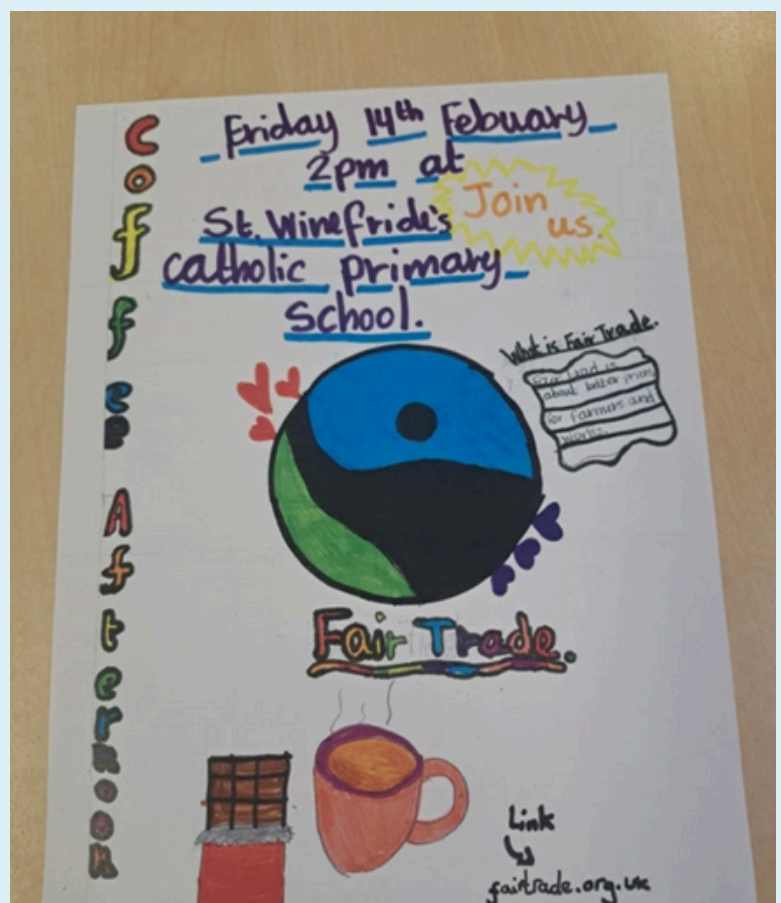 Coffee Afternoon
Friday 14th Febuary
2pm at
St. Winefride's
Catholic primary
School.
Join
us.
What is Fair Trade.
Fair Trad is
about better prices
for farmers and
works.
Fair Trade.
Link
fairtrade.org.uk